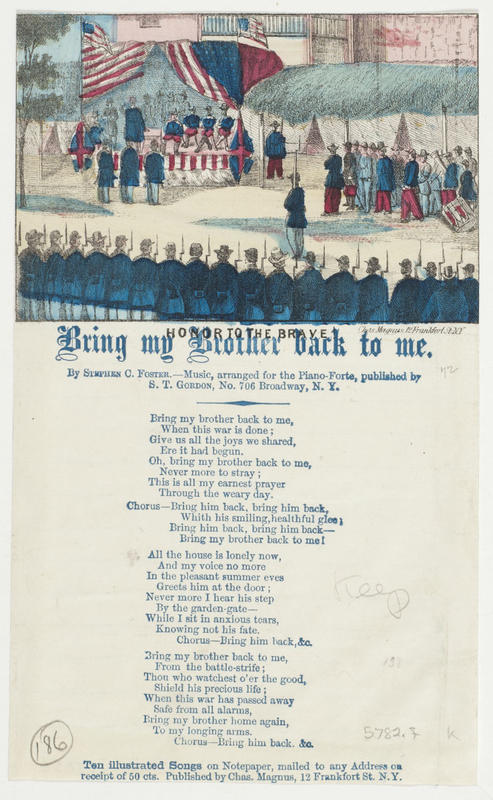 HONOR TO THE BRAVE.
Chas. Magnus, 12 Frankfort St. N.Y.
Bring my Brother back to me.
By Stephen C. Foster.—Music, arranged for the Piano-Forte, published by
S. T. Gordon, No. 706 Broadway, N. Y.
Bring my brother back to me,
When this war is done;
Give us all the joys we shared,
Ere it had begun.
Oh, bring my brother back to me,
Never more to stray;
This is all my earnest prayer
Through the weary day.
Chorus—Bring him back, bring him back,
Whith his smiling,healthful glee;
Bring him back, bring him back—
Bring my brother back to me!
All the house is lonely now,
And my voice no more
In the pleasant summer eves
Greets him at the door;
Never more I hear his step
By the garden-gate—
While I sit in anxious tears,
Knowing not his fate.
Chorus—Bring him back,&c.
Bring my brother back to me,
From the battle-strife;
Thou who watchest o'er the good,
Shield his precious life;
When this war has passed away
Safe from all alarms,
Bring my brother home again,
To my longing arms.
Chorus—Bring him back. &c.
Keep
186
5782.7
K
Ten illustrated Songs on Notepaper, mailed to any Address on
receipt of 50 cts. Published by Chas. Magnus, 12 Frankfort St. N.Y.